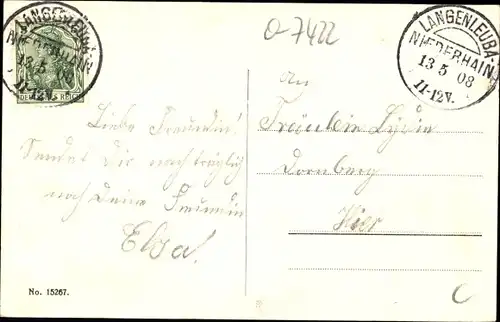 LANGENLEUBA-
NIEDERHAIN
13 5 08
11-12V.
DEUTSCHES REICH
O-7422
LANGENLEUBA-N.
NIEDERHAIN
13 5 08
11-12V.
Liebe Freundin!
Sendet Dir nachträglich
noch Deine Freundin
Elsa!
An
Fräulein Lydia
Dornberg
Hier
No. 15267.
C